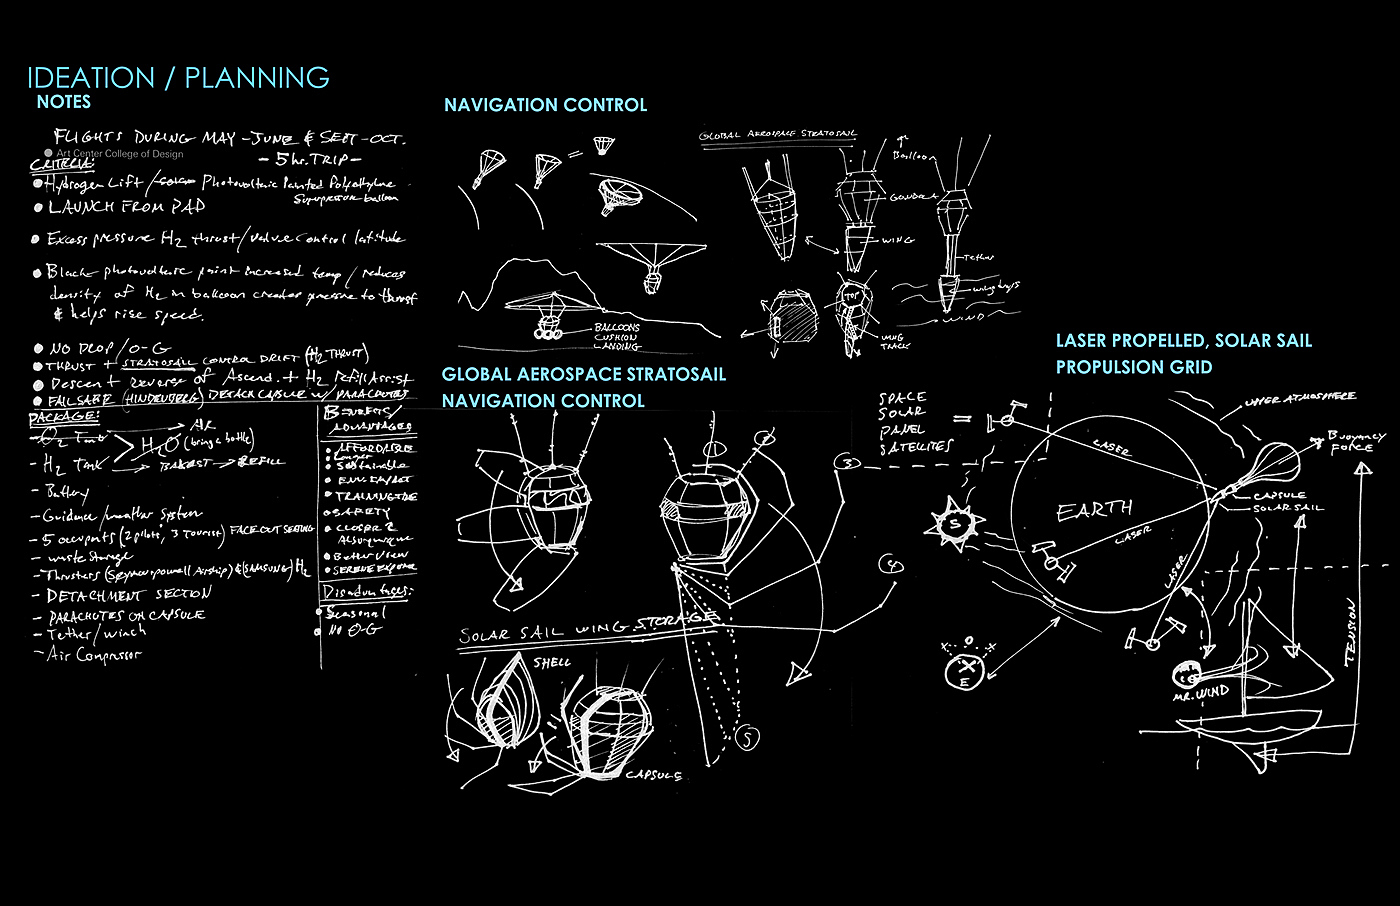 IDEATION / PLANNING
NOTES
FLIGHTS DURING MAY -JUNE & SEPT -OCT.
Art Center College of Design
- 5 hr. TRIP -
CRITERIA:
Hydrogen Lift / Photovoltaic Painted Polyethylene
Superpressure balloon
LAUNCH FROM PAD
Excess pressure H2 thrust/valve control latitude
Black photovoltaic paint increased temp / reduces
density of H2 in balloon creates pressure to thrust
& helps rise speed.
NO DROP / O-G
THRUST + STRATOSAIL CONTROL DRIFT (H2 THRUST)
Descent reverse of Ascend. + H2 Refill Assist
FAILSAFE (HINDENBERG) DETACH CAPSULE w/ PARACHUTES
PACKAGE:
- O2 Tank
AIR
H2O (bring a bottle)
- H2 Tank
BALLAST → REFILL
- Battery
- Guidance/weather System
- 5 occupants (2 pilot, 3 Tourist) FACE OUT SEATING
- waste Storage
- Thrusters (Seymourpowell Airship) & (SAMSUNG) H2
- DETACHMENT SECTION
- PARACHUTES ON CAPSULE
- Tether/winch
- Air Compressor
BENEFITS/
ADVANTAGES
AFFORDABLE
Longer
Sustainable
TRAINING
SAFETY
CLOSER 2
Albuquerque
Better View
SERENE
Disadvantages:
Seasonal
NO O-G
NAVIGATION CONTROL
BALLOONS
CUSHION
LANDING
GLOBAL AEROSPACE STRATOSAIL
Balloon
GONDOLA
WING
Tether
WIND
TOP
WING
TRACK
GLOBAL AEROSPACE STRATOSAIL
NAVIGATION CONTROL
1
2
3
4
5
SOLAR SAIL WING STORAGE
SHELL
CAPSULE
LASER PROPELLED, SOLAR SAIL
PROPULSION GRID
SPACE
SOLAR
PANEL
SATELITES
=
UPPER ATMOSPHERE
Buoyancy
FORCE
LASER
CAPSULE
SOLAR SAIL
EARTH
S
LASER
LASER
TENSION
O
E
MR. WIND